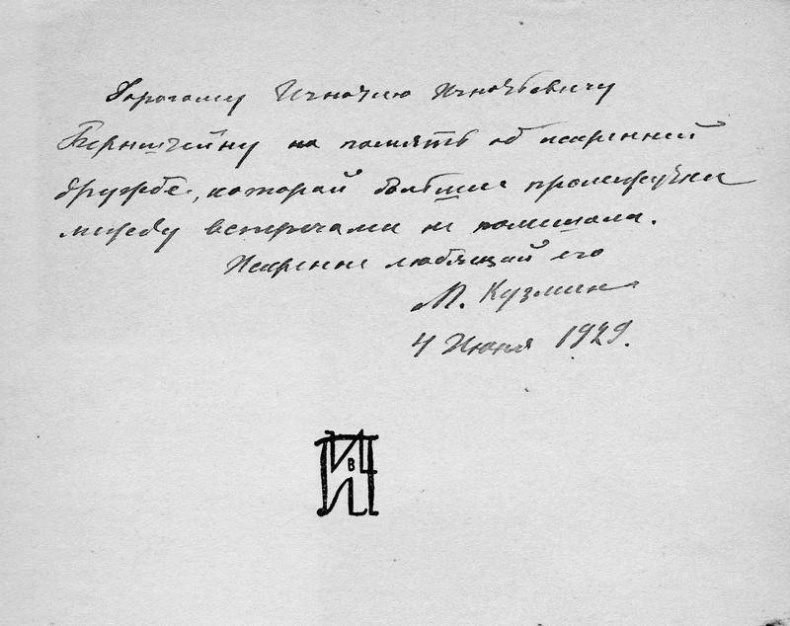 Дорогому Игнатию Игнатьевичу
Бернштейну на память об искренней
дружбе, которой большие промежутки
между встречами не помешали.
Искренне любящий его
М. Кузмин
4 Июня 1929.